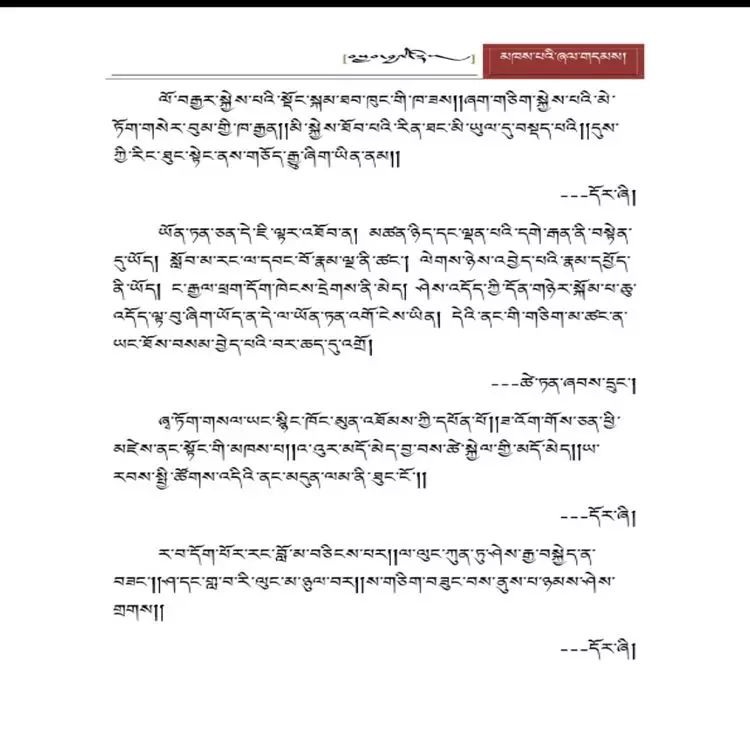 མཁས་པའི་ཞལ་གདམས།
ལོ་བརྒྱར་སྐྱེས་པའི་སྡོང་སྐམ་ཐབ་ཁུང་གི་ཁ་ཟས།།ཞག་གཅིག་སྐྱེས་པའི་མེ་
ཏོག་གསེར་བུམ་གྱི་ཁ་རྒྱན།།མི་སྐྱེས་ཐོབ་པའི་རིན་ཐང་མི་ཡུལ་དུ་བསྡད་པའི།།དུས་
ཀྱི་རིང་ཐུང་སྟེང་ནས་གཅོད་རྒྱུ་ཞིག་ཡིན་ནམ།།
---དོར་ཞི།
ཡོན་ཏན་ཅན་དེ་ཇི་ལྟར་འཐོབ་ན། མཚན་ཉིད་དང་ལྡན་པའི་དགེ་རྒན་ནི་བསྟེན་
དུ་ཡོད། སློབ་མ་རང་ལ་དབང་པོ་རྣམ་ལྔ་ནི་ཚང་། ལེགས་ཉེས་འབྱེད་པའི་རྣམ་དཔྱོད་
ནི་ཡོད། ང་རྒྱལ་ཕྲག་དོག་ཁེངས་དྲེགས་ནི་མེད། ཤེས་འདོད་ཀྱི་དོན་གཉེར་སྐོམ་པ་ཆུ་
འདོད་ལྟ་བུ་ཞིག་ཡོད་ན་དེ་ལ་ཡོན་ཏན་འགོ་ངེས་ཡིན། དེའི་ནང་གི་གཅིག་མ་ཚང་ན་
ཡང་ཐོས་བསམ་བྱེད་པའི་བར་ཆད་དུ་འགྲོ།
---ཚེ་ཏན་ཞབས་དྲུང་།
ཞྭ་ཏོག་གསལ་ཡང་སྙིང་ཁོང་མུན་འཐོམས་ཀྱི་དཔོན་པོ།།ཟ་འོག་གོས་ཅན་ཕྱི་
མཛེས་ནང་སྟོང་གི་མཁས་པ།།འ་འུར་མདོ་མེད་བྱ་བས་ཚེ་སྐྱེལ་གྱི་མདོ་མེད།།ཡ་
རབས་སྤྱི་ཚོགས་འདིའི་ནང་མདུན་ལམ་ནི་ཐུང་ངོ་།།
---དོར་ཞི།
ར་བ་དོག་པོར་རང་བློ་མ་བཅིངས་པར།།ལ་ལུང་ཀུན་ཏུ་ཤེས་རྒྱ་བསྐྱེད་ན་
བཟང་།།ཤ་དང་གླ་བ་རི་ལུང་མ་ཉུལ་བར།།ས་གཅིག་བཟུང་བས་ནུས་པ་ཉམས་ཤེས་
གྲགས།།
---དོར་ཞི།